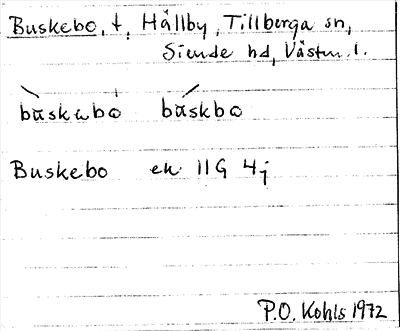 Buskebo, t, Hållby, Tillberga sn,
Siende hd, Västm. l.
buskabo buskbo
Buskebo ek 11G 4j
P.O. Kohls 1972